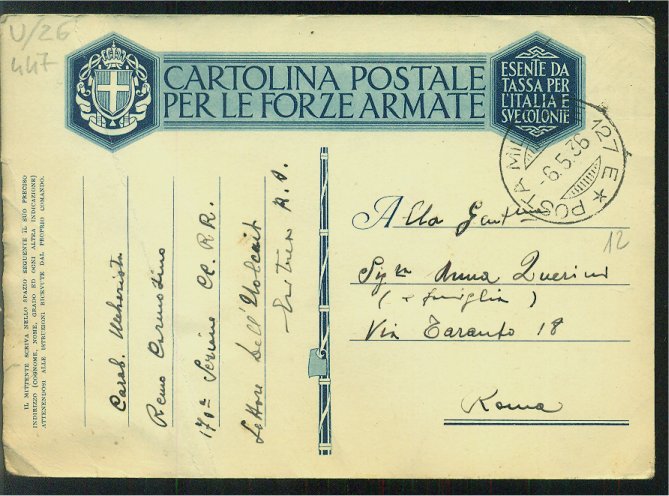 U/26
447
CARTOLINA POSTALE
PER LE FORZE ARMATE
ESENTE DA
TASSA PER
L'ITALIA E
SVE COLONIE
POSTA MI 127 E *
-6.5.36
IL MITTENTE SCRIVA NELLO SPAZIO SEGUENTE IL SUO PRECISO
INDIRIZZO (COGNOME, NOME, GRADO ED OGNI ALTRA INDICAZIONE)
ATTENENDOSI ALLE ISTRUZIONI RICEVUTE DAL PROPRIO COMANDO.
Carab.
Remo
170ª Sezione CC. R.R.
Settore Dell'Uolcait
Eritrea A.O.
Alla Gent
12
Sigra Anna Querini
( e famiglia )
Via Taranto 18
Roma